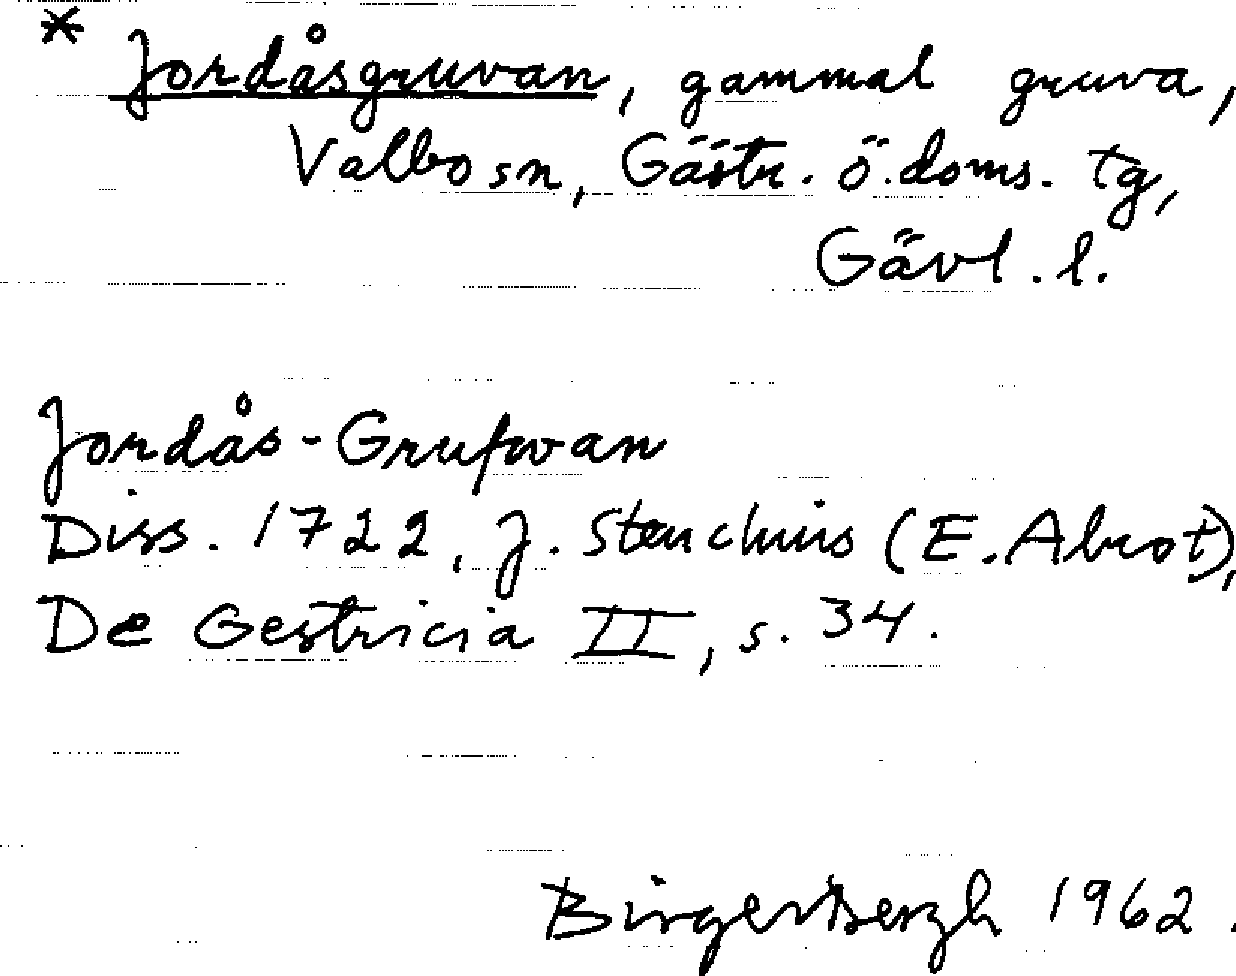 * Jordåsgruvan, gammal gruva,
Valbo sn, Gästr. ö. doms. tg,
Gävl. l.
Jordås-Grufwan
Diss. 1722, J. Stenchius (E. Abrot),
De Gestricia II, s. 34.
Birger Bergh 1962.